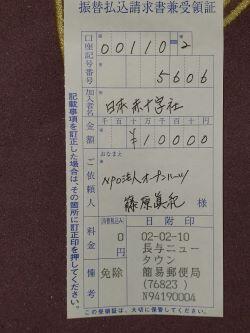 振替払込請求書兼受領証
口座記号番号
00110-2
5606
加入者名
日本赤十字社
金額
千百十万千百十円
¥10000
ご依頼人
おなまえ
NPO法人オープンハーツ
藤原真紀 様
料金
消費税込み
0
円
備考
免除
日附印
02-02-10
長与ニュー
タウン
簡易郵便局
(76823)
N94190004
記載事項を訂正した場合は、その箇所に訂正印を押してください。
この受領証は、大切に保管してください。